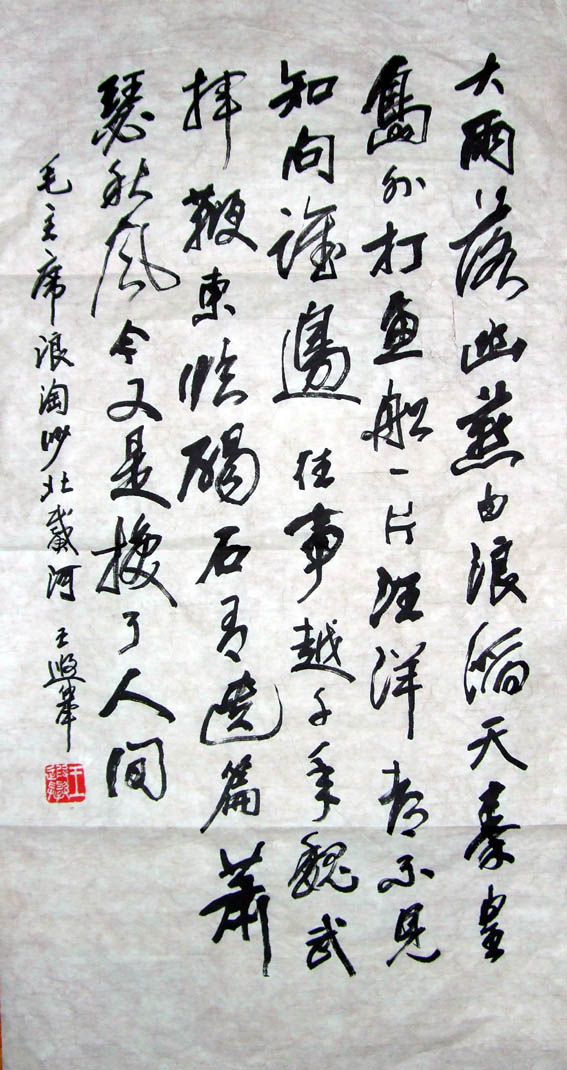 大雨落幽燕白浪滔天秦皇
島外打鱼船一片汪洋都不見
知向誰邊往事越千年魏武
揮鞭東临碣石有遗篇萧
瑟秋風今又是換了人间
毛主席浪淘沙北戴河 王